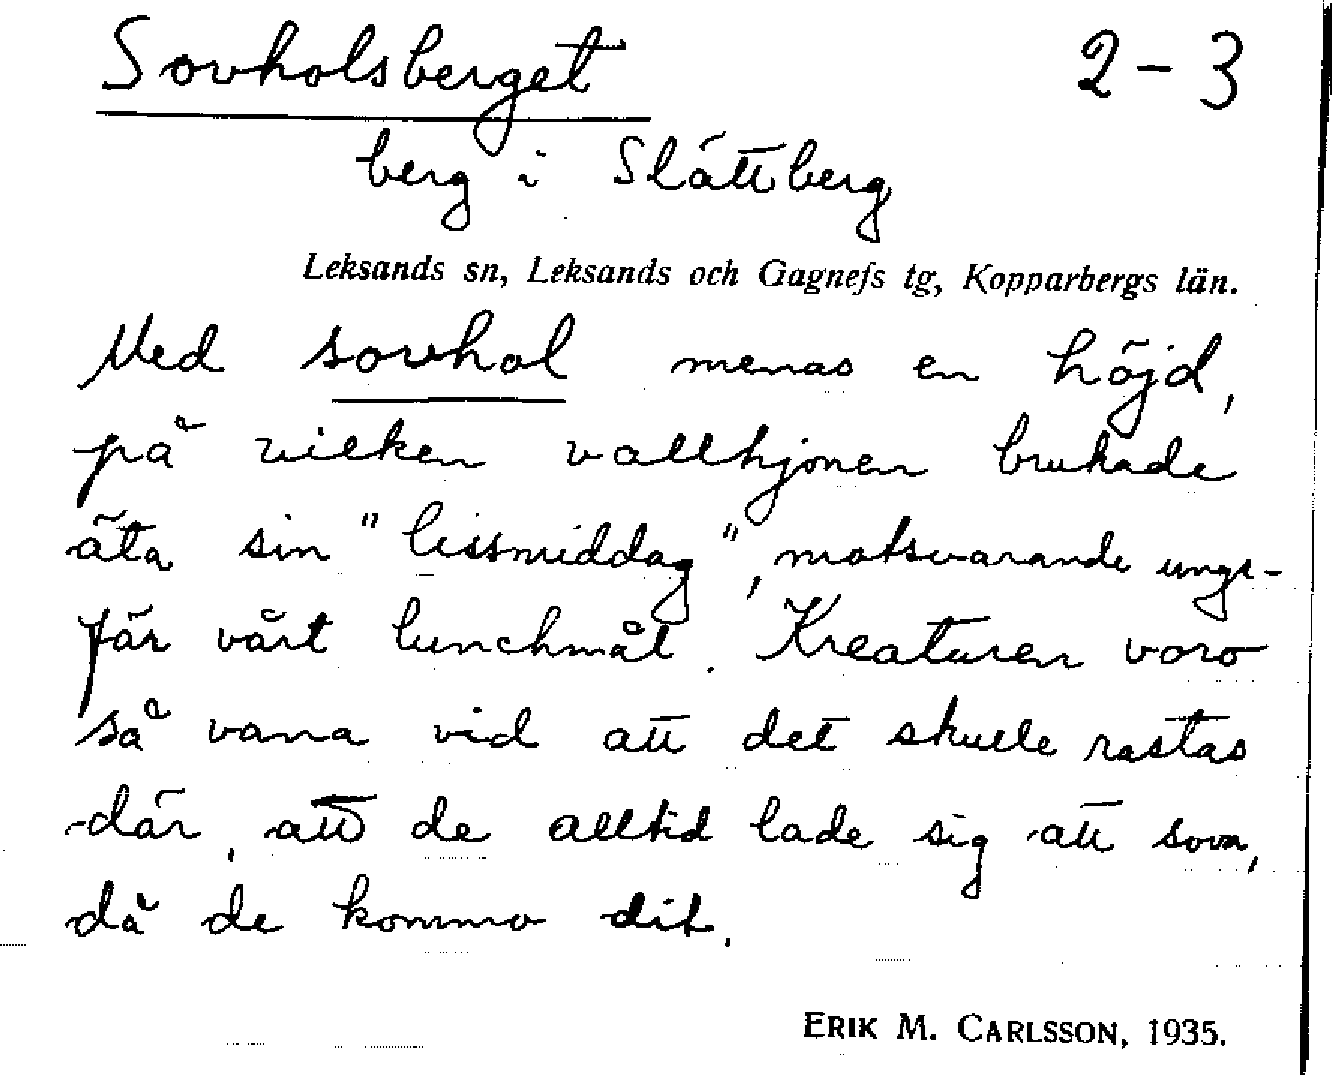 Sovholsberget 2-3
berg i Slättberg
Leksands sn, Leksands och Gagnefs tg, Kopparbergs län.
Med sovhol menas en höjd,
på vilken vallhjonen brukade
äta sin "lissmiddag", motsvarande unge-
fär vårt lunchmål. Kreaturen voro
så vana vid att det skulle rastas
där, att de alltid lade sig att sova,
då de kommo dit.
ERIK M. CARLSSON, 1935.